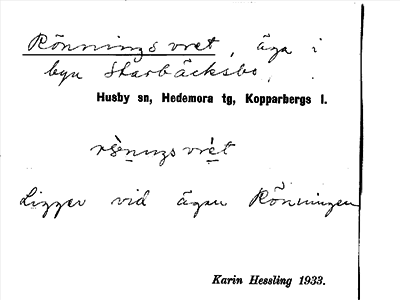 Rönningsvret, äga i
byn Starbäcksbo,
Husby sn, Hedemora tg, Kopparbergs l.
Ligger vid ägan Rönningen
Karin Hessling 1933.